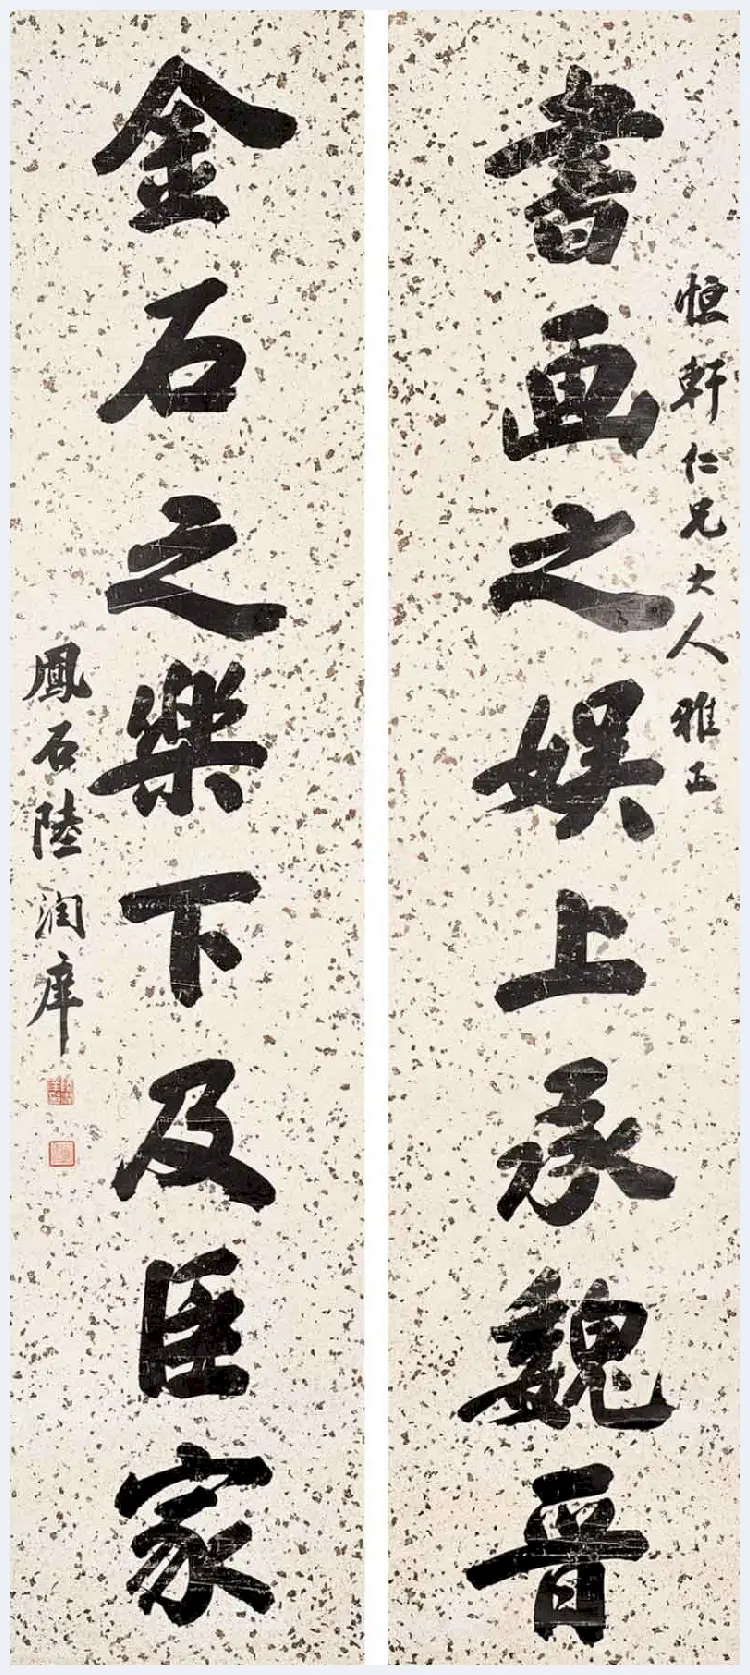 恒軒仁兄大人雅正
書画之娛上承魏晋
金石之樂下及臣家
鳳石陸潤庠